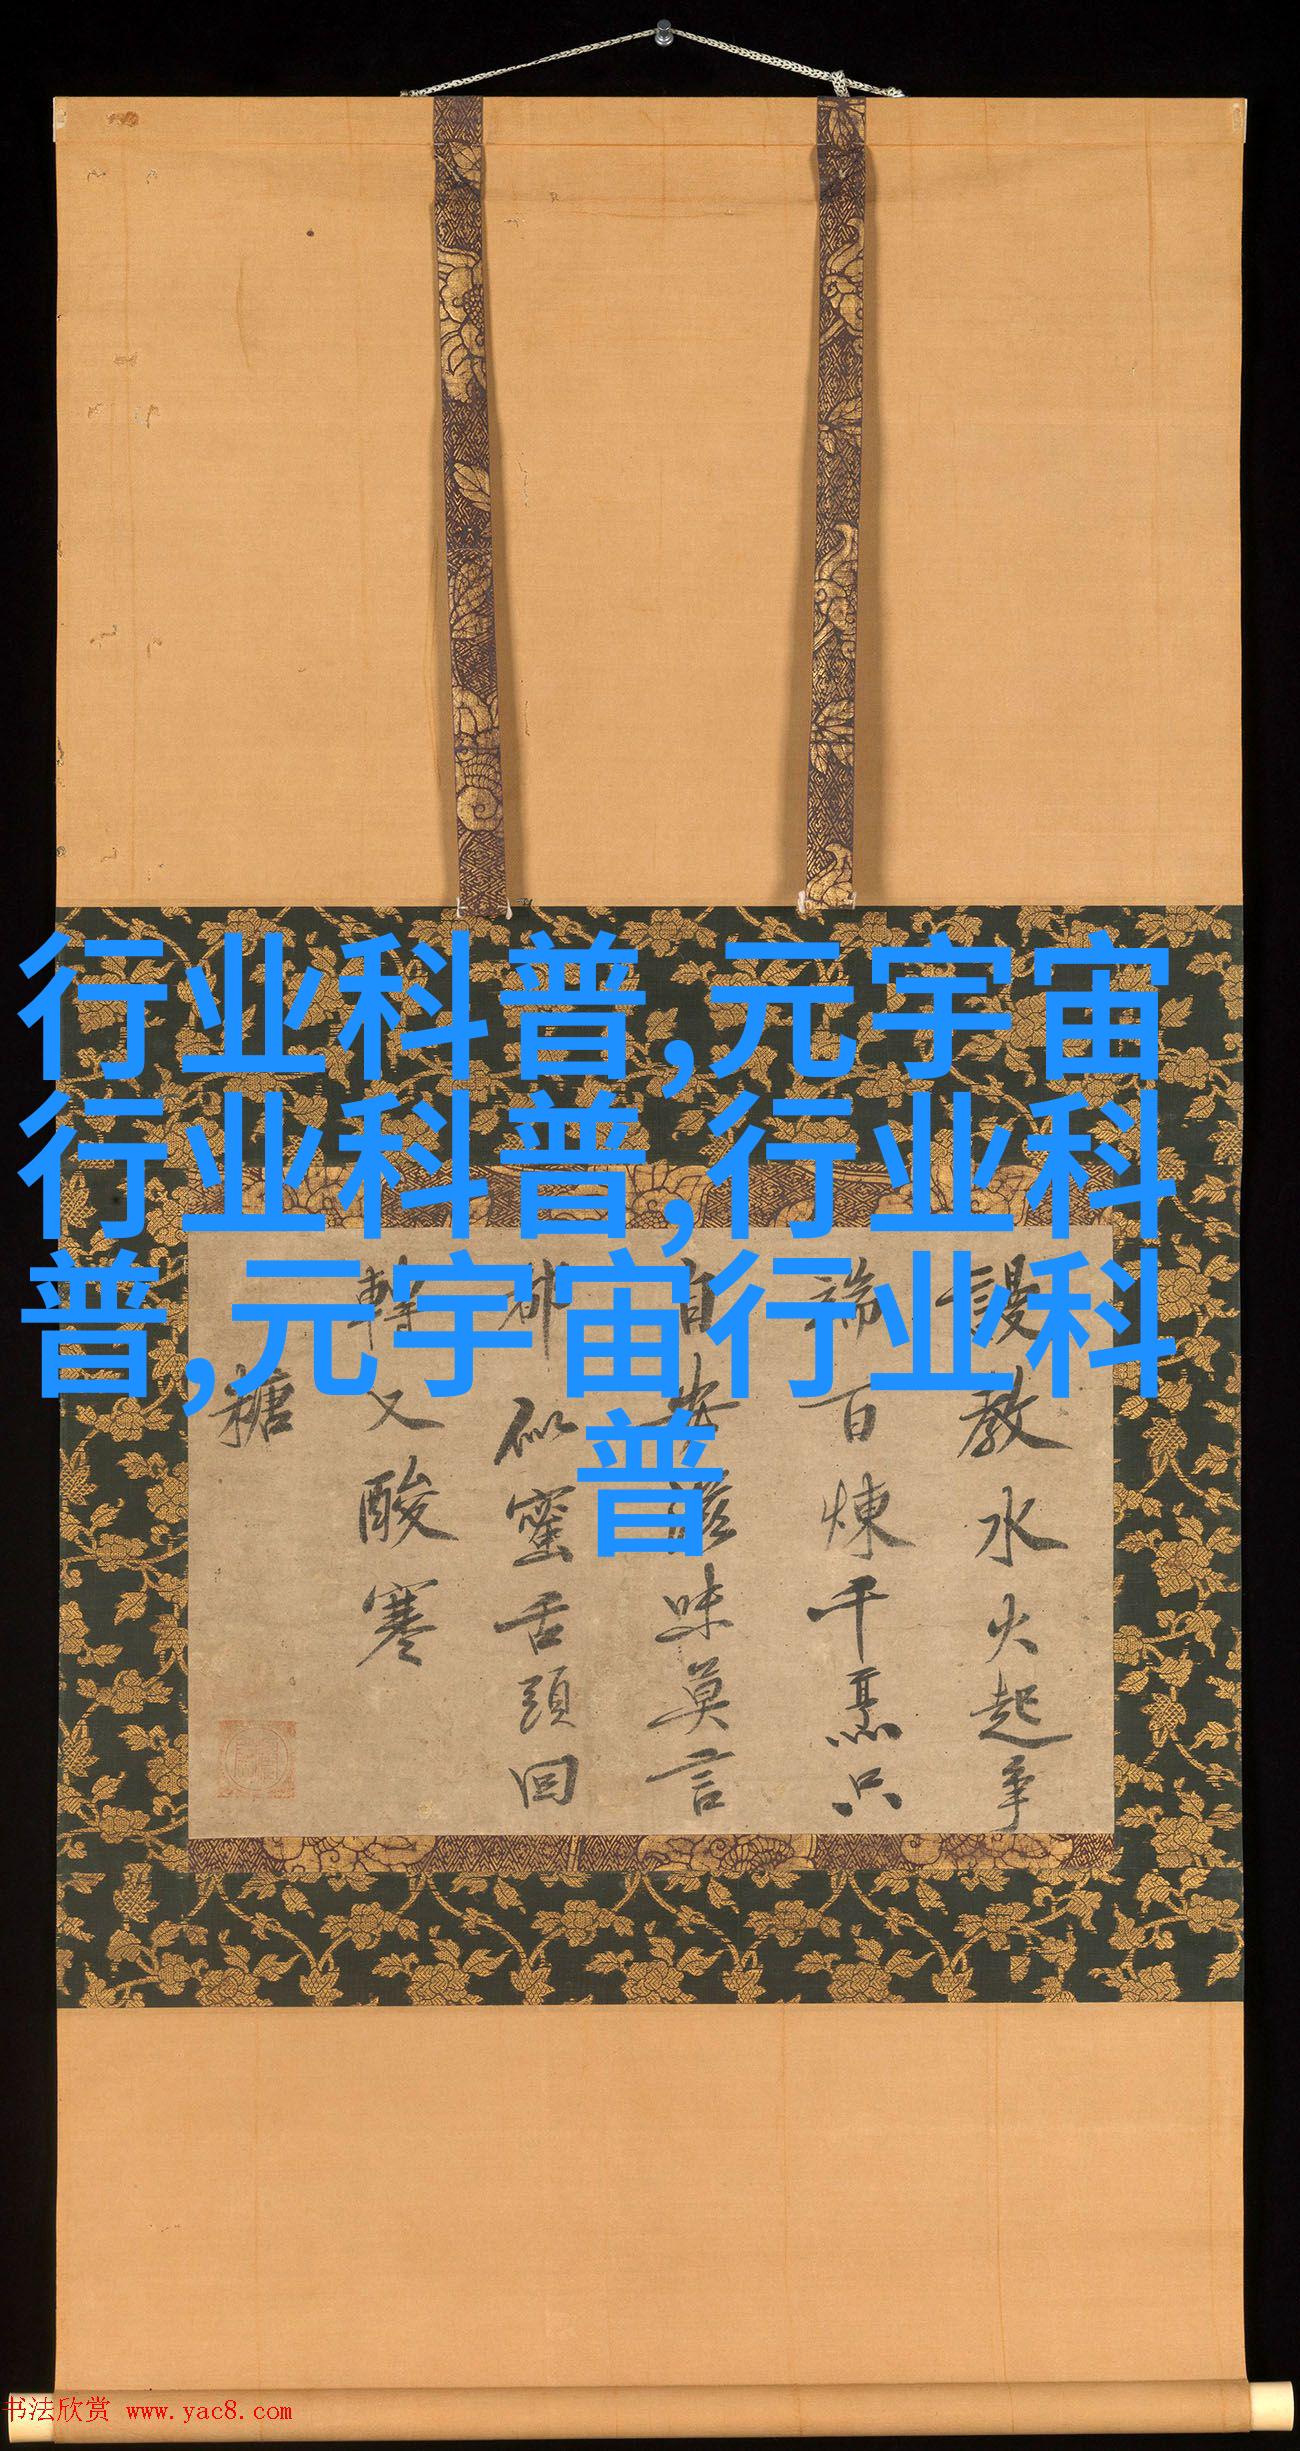 行业科普,元宇宙
行业科普,行业科
普,元宇宙行业科
普
謾教水火起爭
端百煉千烹只
味莫言
都似蜜舌頭回
轉又酸寒
糖
书法欣赏 www.yac8.com